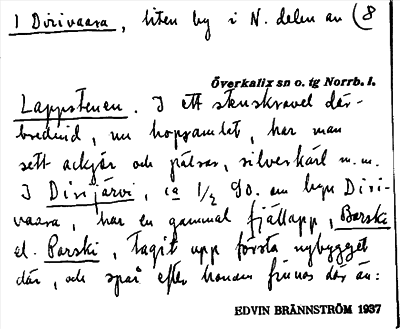 I Dirivaara, liten by i N. delen av (8
Överkalix sn o. tg Norrb. l.
Lappstenen. I ett stenskravel där-
bredvid, nu hopsamlat, har man
sett ackjor och pälsar, silverkärl m.m.
I Dirijärvi, ca 1/2 90. om byn Diri-
vaara, har en gammal fjällapp, Barski
el. Parski, tagit upp första nybygget
där, och spår efter honom finnas där än:
EDVIN BRÄNNSTRÖM 1937